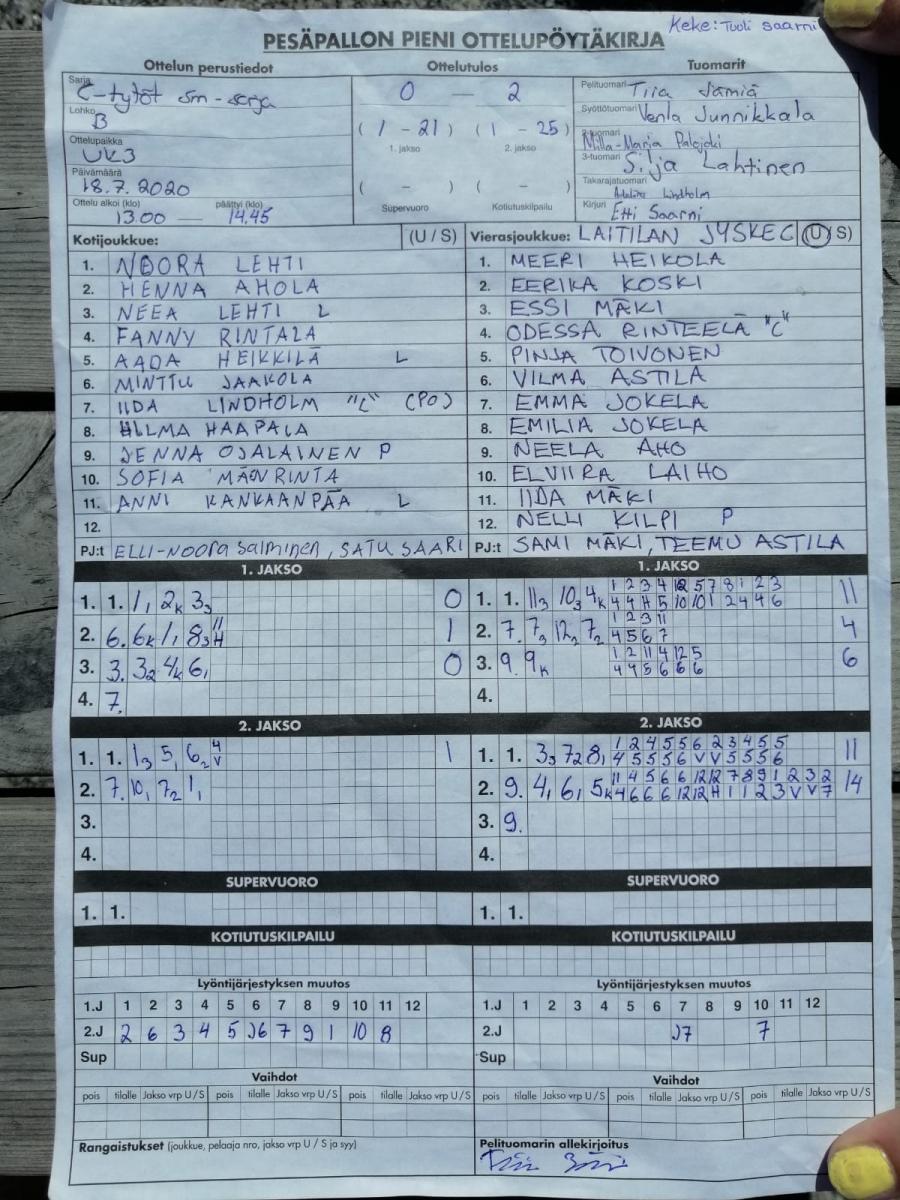 Keke: Tuuli Saarni
PESÄPALLON PIENI OTTELUPÖYTÄKIRJA
Ottelun perustiedot Ottelutulos Tuomarit
Sarja C-tytöt Sm-sarja
Lohko B
Ottelupaikka UK3
Päivämäärä 18.7.2020
Ottelu alkoi (klo) päättyi (klo)
13.00 — 14.45
0 — 2
(1 - 21) (1 - 25)
1. jakso 2. jakso
( - ) ( - )
Supervuoro Kotiutuskilpailu
Pelituomari Tiia Jämiä
Syöttötuomari Venla Junnikkala
2-tuomari Milla-Marja Palojoki
3-tuomari Silja Lahtinen
Takarajatuomari Lindholm
Kirjuri Etti Saarni
Kotijoukkue: (U / S)
1. NOORA LEHTI
2. HENNA AHOLA
3. NEEA LEHTI L
4. FANNY RINTALA
5. AADA HEIKKILÄ L
6. MINTTU JAAKOLA
7. IIDA LINDHOLM "C" (PO)
8. HILMA HAAPALA
9. JENNA OJALAINEN P
10. SOFIA MÄNRINTA
11. ANNI KANKAANPÄÄ L
12.
PJ:t ELLI-NOORA Salminen, SATU SAARI
Vierasjoukkue: LAITILAN JYSKE (U / S)
1. MEERI HEIKOLA
2. EERIKA KOSKI
3. ESSI MÄKI
4. ODESSA RINTEELÄ "C"
5. PINJA TOIVONEN
6. VILMA ASTILA
7. EMMA JOKELA
8. EMILIA JOKELA
9. NEELA AHO
10. ELVIIRA LAIHO
11. IIDA MÄKI
12. NELLI KILPI P
PJ:t SAMI MÄKI, TEEMU ASTILA
1. JAKSO
1. 1. 1, 2k 33 0
2. 6. 6k 1, 83 11 H 1
3. 3. 32 4k 6, 0
4. 7.
1. JAKSO
1 2 3 4 12 5 7 8 1 2 3
1. 1. 113 103 4k 4 4 H 5 10 10 1 2 4 4 6 11
1 2 3 11
2. 7. 73 122 72 4 5 6 7 4
1 2 11 4 12 5
3. 9. 9k 4 4 5 6 6 6 6
4.
2. JAKSO
1. 1. 13 5, 62 4 V 1
2. 7. 10, 72 1,
3.
4.
2. JAKSO
1 2 4 5 5 6 2 3 4 5 5
1. 1. 33 72 8, 4 5 5 5 6 V V 5 5 5 6 11
11 4 5 6 6 12 12 7 8 9 1 2 3 2
2. 9. 4, 6, 5k 4 6 6 6 12 12 H 1 1 2 3 V V 7 14
3. 9.
4.
SUPERVUORO SUPERVUORO
1. 1. 1. 1.
KOTIUTUSKILPAILU KOTIUTUSKILPAILU
Lyöntijärjestyksen muutos
1.J 1 2 3 4 5 6 7 8 9 10 11 12
2.J 2 6 3 4 5 J6 7 9 1 10 8
Sup
Lyöntijärjestyksen muutos
1.J 1 2 3 4 5 6 7 8 9 10 11 12
2.J J7 7
Sup
Vaihdot Vaihdot
pois tilalle Jakso vrp U / S pois tilalle Jakso vrp U / S pois tilalle Jakso vrp U / S
pois tilalle Jakso vrp U / S pois tilalle Jakso vrp U / S pois tilalle Jakso vrp U / S
Rangaistukset (joukkue, pelaaja nro, jakso vrp U / S ja syy)
Pelituomarin allekirjoitus